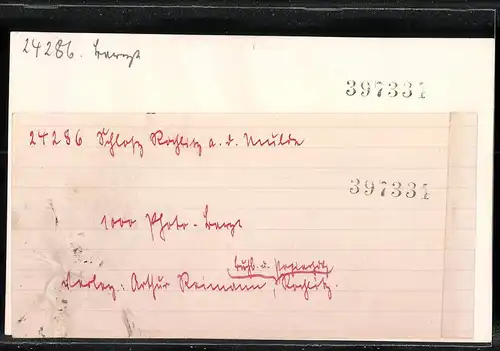 24286. bergt
397331
24286 Schloß Rochlitz a. d. Mulde
397331
1000 Photo - bergt
Buch. u. Papierhdlg
Verlag: Arthur Reimann, Rochlitz.